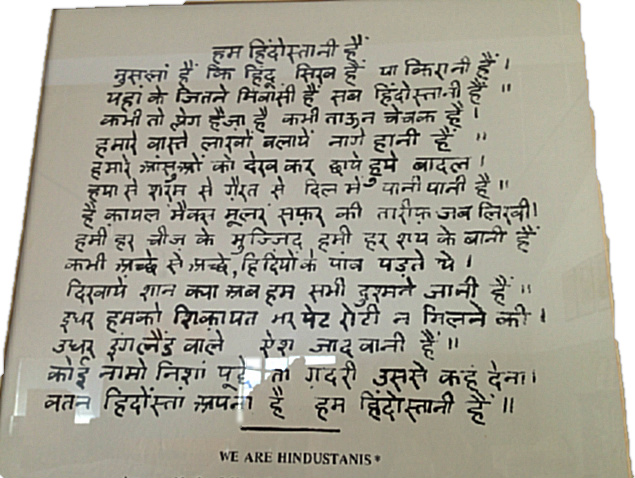 हम हिंदोस्तानी हैं
मुसलमां हैं कि हिंदू सिख हैं या किरानी हैं ।
यहां के जितने निवासी हैं सब हिंदोस्तानी हैं ॥
कभी तो प्लेग हैज़ा है कभी ताऊन चेचक है ।
हमारे वास्ते लाखों बलायें नागे हानी हैं ॥
हमारे आंसुओं को देख कर छाये हुये बादल ।
हया से शरम से ग़ैरत से दिल में पानी पानी है ॥
हैं कायल मैक्स मूलर सफ़र की तारीफ़ जब लिखी।
हमीं हर चीज के मुज्जिद हमी हर शय के बानी हैं
कभी अच्छे से अच्छे, हिंदियों के पांव पड़ते थे ।
दिखायें शान क्या अब हम सभी दुश्मने जानी हैं ॥
इधर हमको शिकायत भर पेट रोटी न मिलने की ।
उधर इंगलैंड वाले ऐश जादवानी हैं ॥
कोई नामो निशां पूछे तो ग़दरी उससे कह देना।
वतन हिदोंस्तां अपना है हम हिंदोस्तानी हैं ॥
WE ARE HINDUSTANIS*